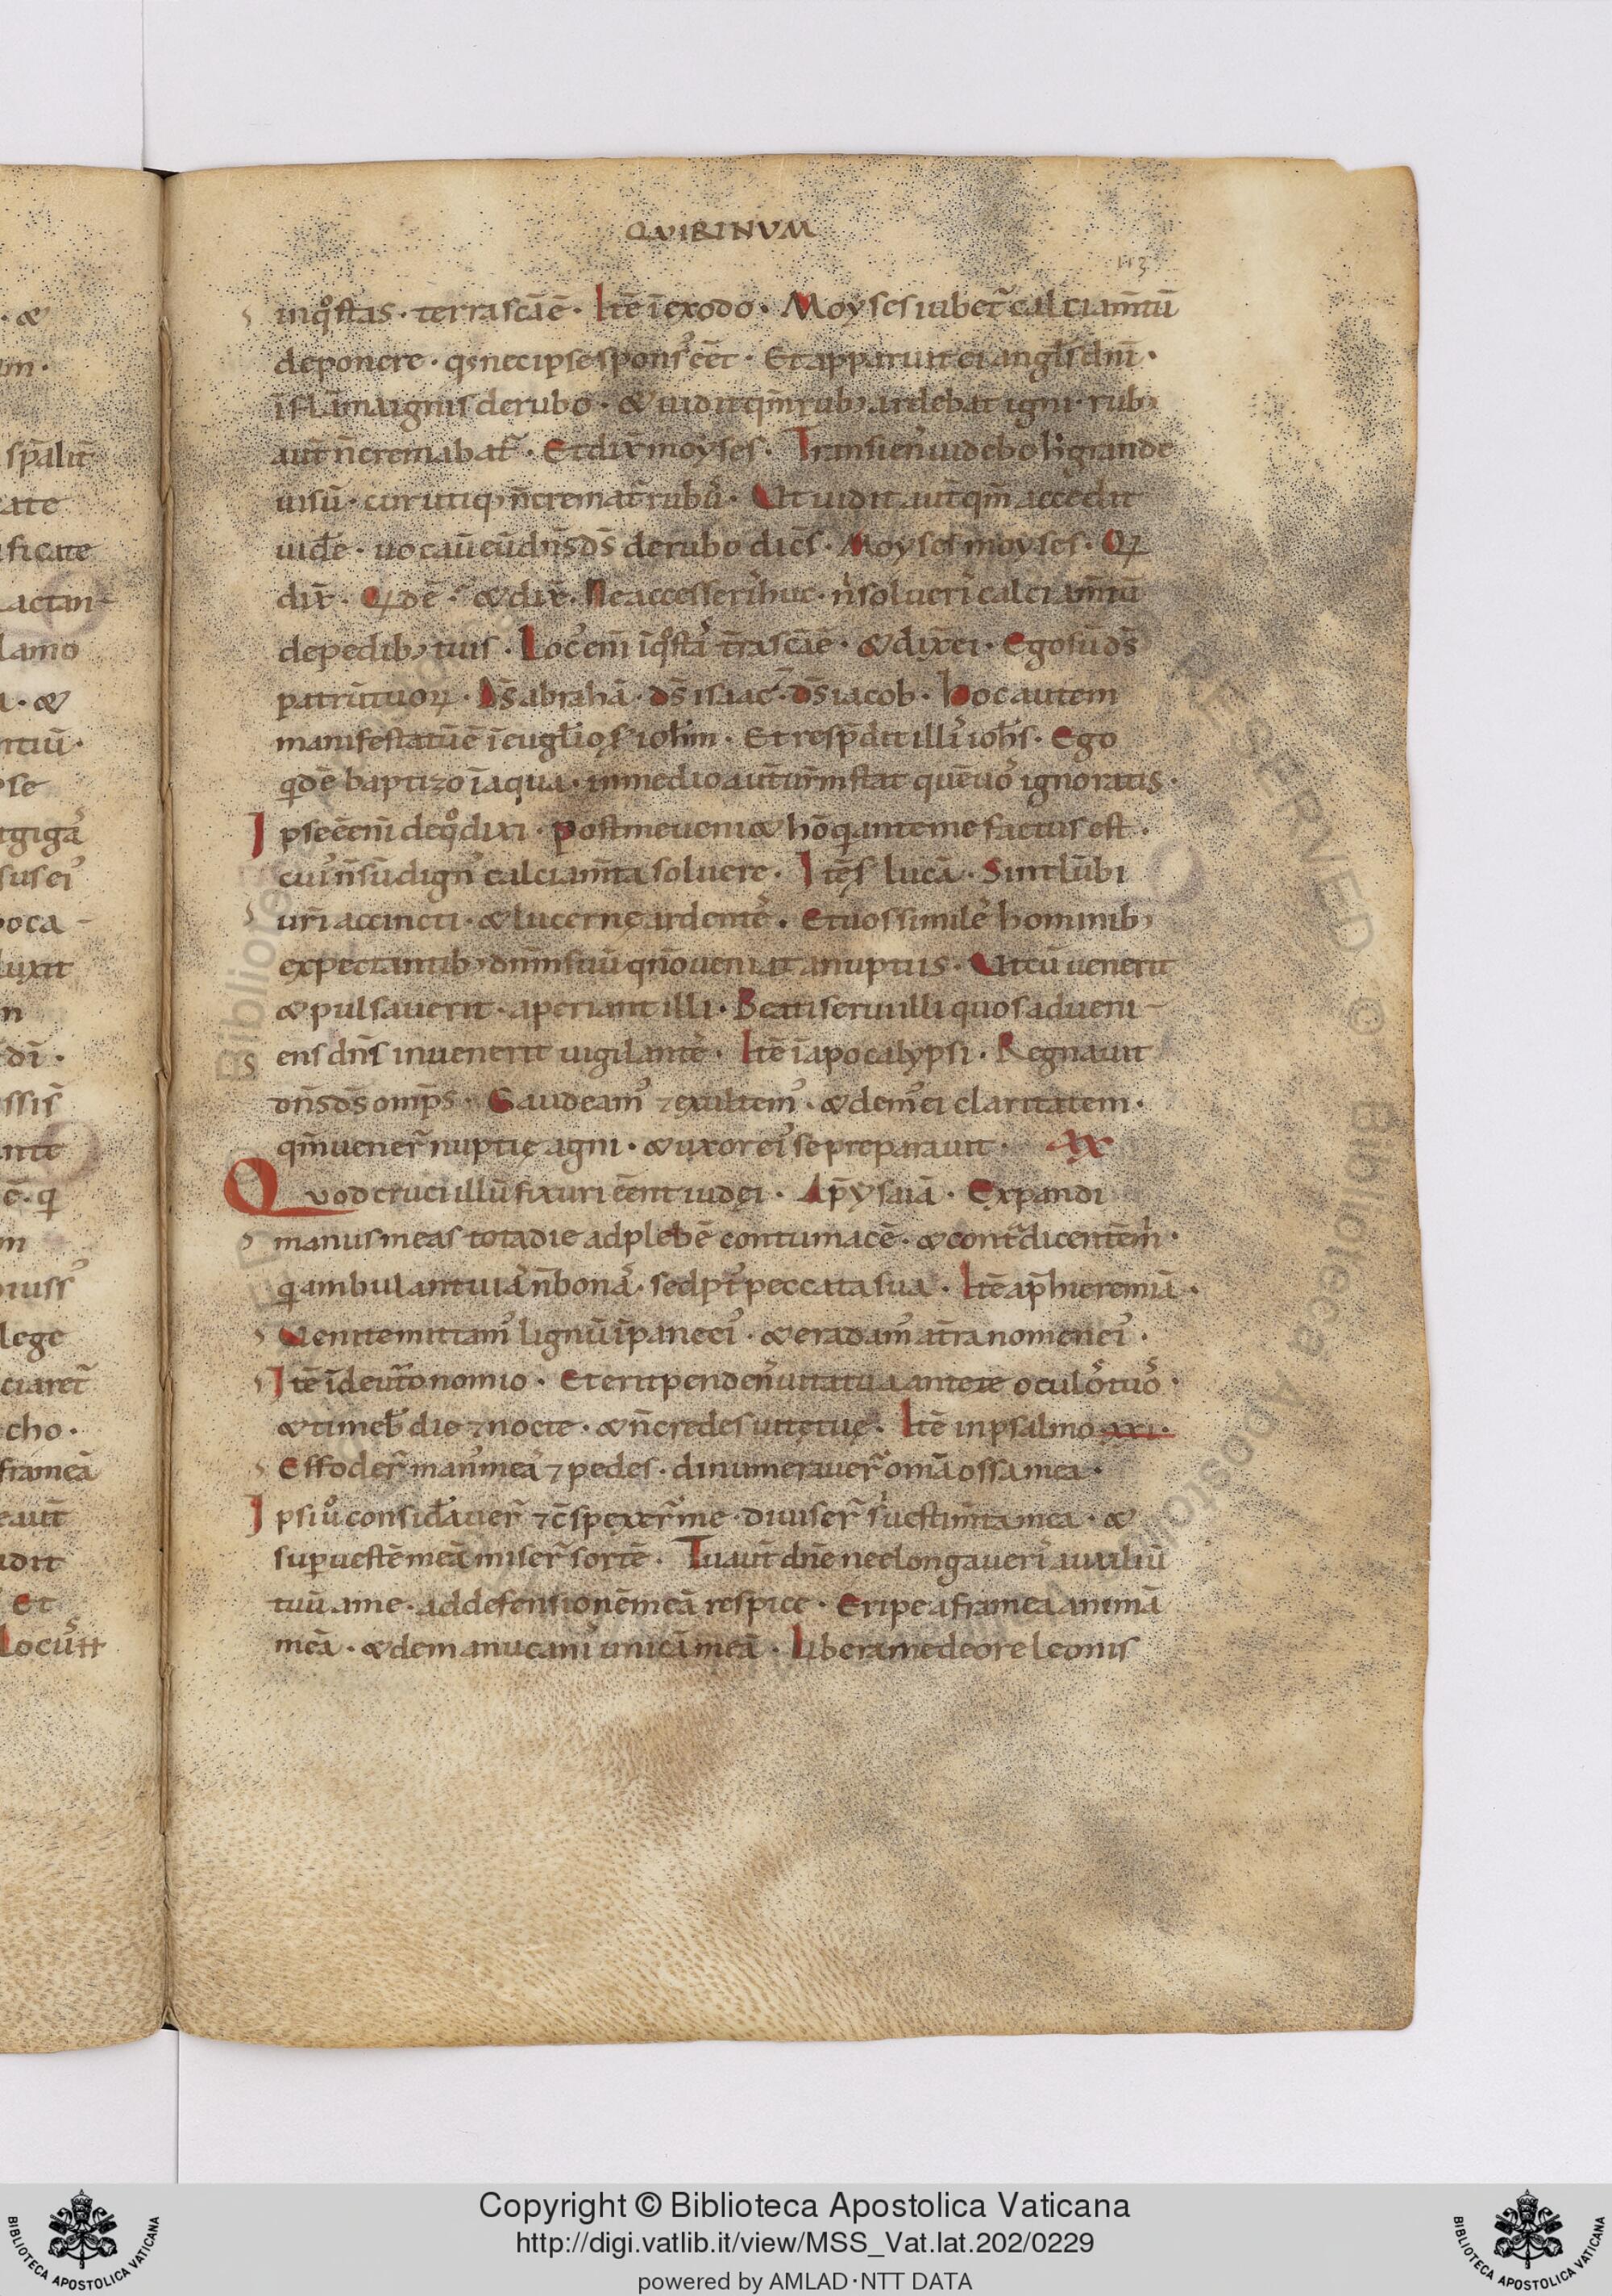 QVIRINVM
113
inqͦ stas · terra sc̄a ē · Itē ī exodo · Moyses iubet᷑ calciam̄tū
deponere · qꝫ nec ipse spons᷒ eēt · Et apparuit ei angl̄s dn̄i ·
ī flāma ignis de rubo · & uidit qm̄ rubꝫ ardebat igni · rubꝫ
aut̄ n̄ cremabat᷑ · Et dix̄ moyses · Transiens uidebo h̓ grande
uisū · cur utiqꝫ n̄ cremat᷑ rubus · Ut uidit aut̄ qm̄ accedit
uidē · uocau̅ eū dn̄s ds̄ de rubo dic̄s · Moyses moyses · Qꝫ
dix̄ · Qdē · & dix̄ · Ne accesseris huc · n̓ solueris calciam̄tū
de pedibꝫ tuis · Locus em̄ ī qͦ stas tr̄a sc̄a ē · & dix̄ ei · Ego sū ds̄
patrū tuoꝝ · Ds̄ abrahā · ds̄ isaac · ds̄ iacob · Hoc autem
manifestatū ē ī eugl̄io s̄ ioh̄m · Et resp̄dit illis ioh̄s · Ego
qdē baptizo ī aqua · in medio aut̄ ur̄m stat quē uos ignoratis ·
Ipse ē em̄ de qͦ dixi · Post me ueni& hō q ante me factus est ·
cui᷒ n̄ sū dign᷒ calciam̄ta soluere · Itē s̄ lucā · Sint lūbi
ur̄i accincti · & lucernę ardentes · Et uos similes hominibꝫ
expectantibꝫ dn̄m suū qn̄ο ueniat a nuptiis · Ut cū uenerit
& pulsauerit · aperiant illi · Beati serui illi quos adueni-
ens dn̄s inuenerit uigilantes · Itē ī apocalypsi · Regnauit
dn̄s ds̄ omp̄s · Gaudeam᷒ ⁊ exultem᷒ · & dem᷒ ei claritatem ·
qm̄ uener̄ nuptię agni · & uxor ei᷒ se preparauit · XX
Quod cruci illū fixuri eēnt iudei · Ap̄ ysaiā · Expandi
manus meas tota die ad plebē contumacē · & contᷓdicentē m̓ ·
q ambulant uias n̄ bonas · sed pt̄ peccata sua · Itē ap̄ hieremiā ·
Uenite mittam᷒ lignū ī pane ei᷒ · & eradam᷒ a tr̄a nomen ei᷒ ·
Itē ī deut̄onomio · Et erit pendens uita tua ante re oculos tuos ·
& timeb̄ die ⁊ nocte · & n̄ credes uitę tuę · Itē in psalmo xxi ·
Effoder̄ man᷒ meas ⁊ pedes · dinumerauer̄ om̄a ossa mea ·
Ipsi u̇ considᷓauer̄ ⁊ cspexer̄ me · diuiser̄ s̓ uestim̄ta mea · &
suꝑ uestē meā miser̄ sortē · Tu aut̄ dn̄e ne elongaueris auxiliū
tuū a me · ad defensionē meā respice · Eripe a framea animā
meā · & de manu canis unicā meā · Libera me de ore leonis
Copyright © Biblioteca Apostolica Vaticana
http://digi.vatlib.it/view/MSS_Vat.lat.202/0229
powered by AMLAD·NTT DATA
BIBLIOTECA APOSTOLICA VATICANA
BIBLIOTECA APOSTOLICA VATICANA